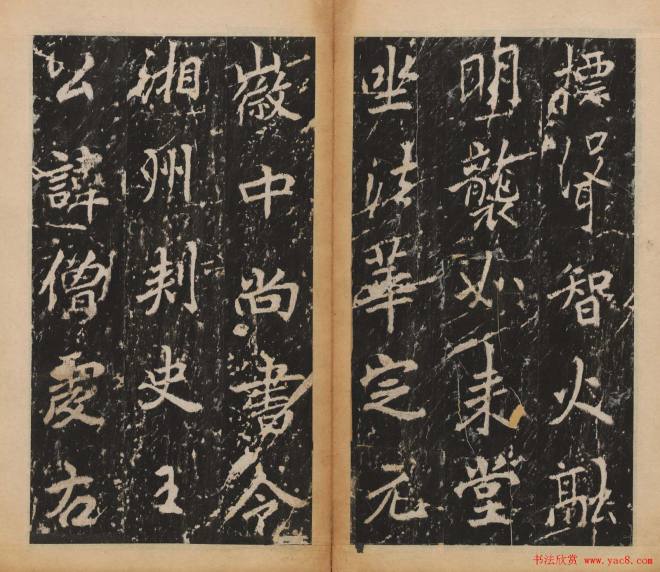 標智火融
明襲如来堂
坐法華定元
徽中尚書令
湘州刺史王
公諱僧虔右
书法欣赏 www.yac8.com